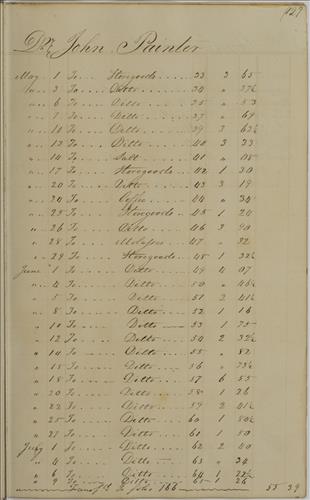 127
Dr John Painter
May 1 To Storegoods 33 3 65
" 3 To Ditto 34 " 37½
" 6 To Ditto 35 " 53
" 7 To Ditto 37 " 69
" 10 To Ditto 39 3 62½
" 13 To Ditto 40 3 23
" 14 To Salt 41 " 08
" 17 To Storegoods 42 1 30
" 20 To Ditto 43 3 19
" 24 To Coffee 44 " 34
" 25 To Storegoods 45 1 24
" 26 To Ditto 46 3 90
" 28 To Molasses 47 " 32
" 29 To Storegoods 48 1 32½
June 1 To Ditto 49 4 07
" 4 To Ditto 50 " 46½
" 5 To Ditto 51 2 41½
" 8 To Ditto 52 1 16
" 10 To Ditto 53 1 75
" 12 To Ditto 54 2 32½
" 14 To Ditto 55 " 82
" 15 To Ditto 56 " 73½
" 18 To Ditto 57 6 55
" 20 To Ditto 58 1 26
" 22 To Ditto 59 2 41½
" 25 To Ditto 60 1 80½
" 27 To Ditto 61 1 50
July 1 To Ditto 62 2 40
" 4 To Ditto 63 " 34
" 6 To Ditto 64 1 22½
" 9 To Ditto 65 1 26
Transf'd To folio 166 55 39